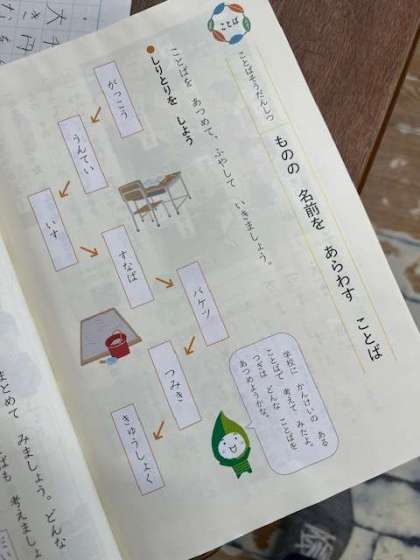 ことば
ことばそうだんしつ
ものの 名前を あらわす ことば
ことばを あつめて、ふやして いきましょう。
●しりとりを しよう
がっこう
うんてい
いす
すなば
バケツ
つみき
きゅうしょく
学校に かんけいの ある
ことばで 考えて みたよ。
つぎは どんな ことばを
あつめようかな。
まとめて みましょう。どんな
ばも 考えましょ